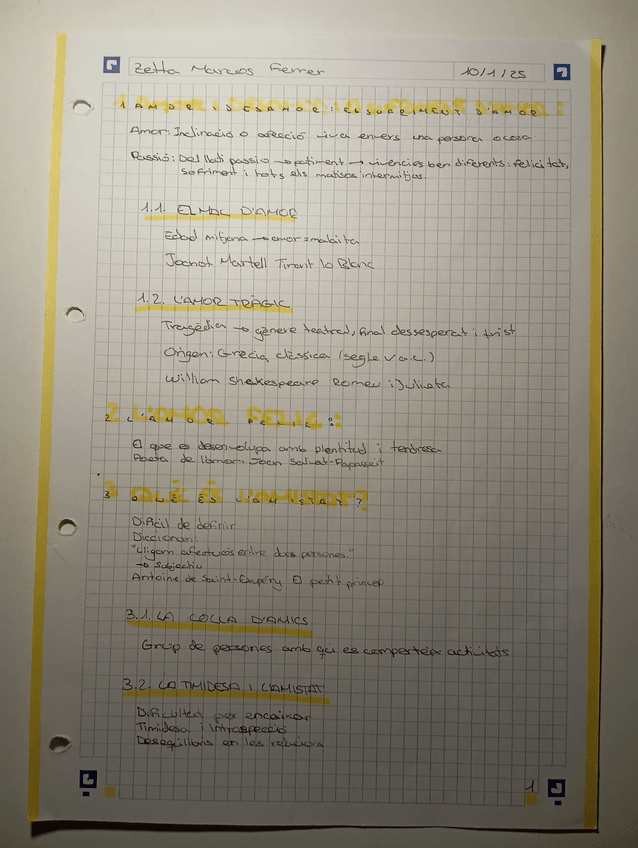 Zetta Marcos Ferrer 10/1/25
1 AMOR I DESAMOR: EL SUFRIMENT D'AMOR
Amor: Inclinació o afecció viva envers una persona o cosa
Passió: Del llatí passio → patiment → vivències ben diferents: felicitat,
sofriment i tots els matisos intermitjos.
1.1. EL MAL D'AMOR
Edad mitjana → amor = malaltia
Joanot Martell Tirant lo Blanc
1.2. L'AMOR TRÀGIC
Tragèdia → gènere teatral, final dessesperat i trist
Origen: Grècia clàssica (segle V a.C.)
William Shakespeare Romeu i Julieta
2 L'AMOR FELIÇ:
El que es desenvolupa amb plentitud i tendresa
Poeta de l'amor: Joan Salvat-Papasseit
3 QUÈ ÉS L'AMISTAT?
Difícil de definir
Diccionari:
"Lligam afectuós entre dues persones."
→ Subjectiu
Antoine de Saint-Exupéry El petit príncep
3.1. LA COLLA D'AMICS
Grup de persones amb qui es comparteix activitats
3.2. LA TIMIDESA I L'AMISTAT
Dificultats per encaixar
Timidesa i introspecció
Desequilibris en les relacions
1